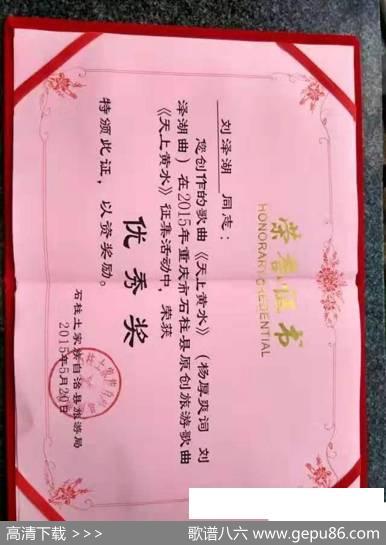 荣誉证书
HONORARY CREDENTIAL
刘泽湖 同志：
您创作的歌曲《天上黄水》（杨厚爽词 刘
泽湖曲）在2015年重庆市石柱县原创旅游歌曲
《天上黄水》征集活动中，荣获
优秀奖
特颁此证，以资奖励。
石柱土家族自治县旅游局
2015年5月20日
高清下载 >>>
歌谱八六 www.gepu86.com